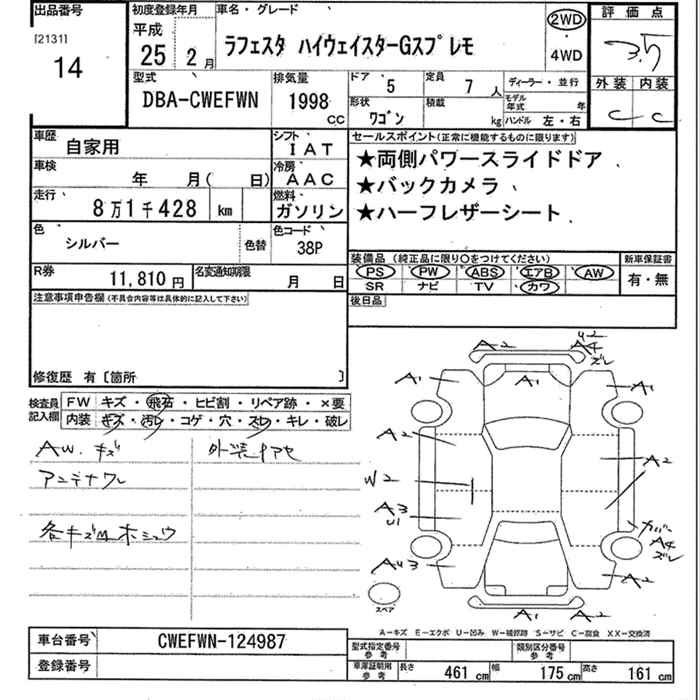 出品番号
[2131]
14
初度登録年月
平成
25 2月
車名・グレード
ラフェスタ ハイウェイスターGスプレモ
2WD
・
4WD
評価点
3.5
外装 内装
C C
型式
DBA-CWEFWN
排気量
1998
CC
ドア
5
定員
7人
形状
ワゴン
積載
kg
ディーラー・並行
モデル年式
年
ハンドル 左・右
車歴
自家用
シフト
IAT
車検
年 月( 日)
冷房
AAC
走行
8万1千428 km
燃料
ガソリン
色
シルバー
色替
色コード
38P
R券
11,810円
名変通知期限
月 日
セールスポイント(正常に機能するものに限ります)
★両側パワースライドドア
★バックカメラ
★ハーフレザーシート
装備品 (純正品に限り○をつけてください)
PS PW ABS エアB AW
SR ナビ TV カワ
新車保証書
有・無
後日品
注意事項申告欄(不具合内容等は具体的に記入して下さい)
修復歴 有〔箇所 〕
検査員記入欄
FW キズ・飛石・ヒビ割・リペア跡・×要
内装 キズ・汚レ・コゲ・穴・スレ・キレ・破レ
AW. キズ
外装ナアセ
アンテナワレ
各キズ凹ホシュウ
A2
U2
A4
ズレ
A1
A1
A1
A2
A2
W2
A3
U1
カバー
A4
ズレ
AU3
A2
A1
A2
スペア
A-キズ E-エクボ U-凹み W-補修跡 S-サビ C-腐食 XX-交換済
車台番号
CWEFWN-124987
登録番号
型式指定番号
参考
類別区分番号
参考
車庫証明用
参考
長さ 461cm
幅 175cm
高さ 161cm